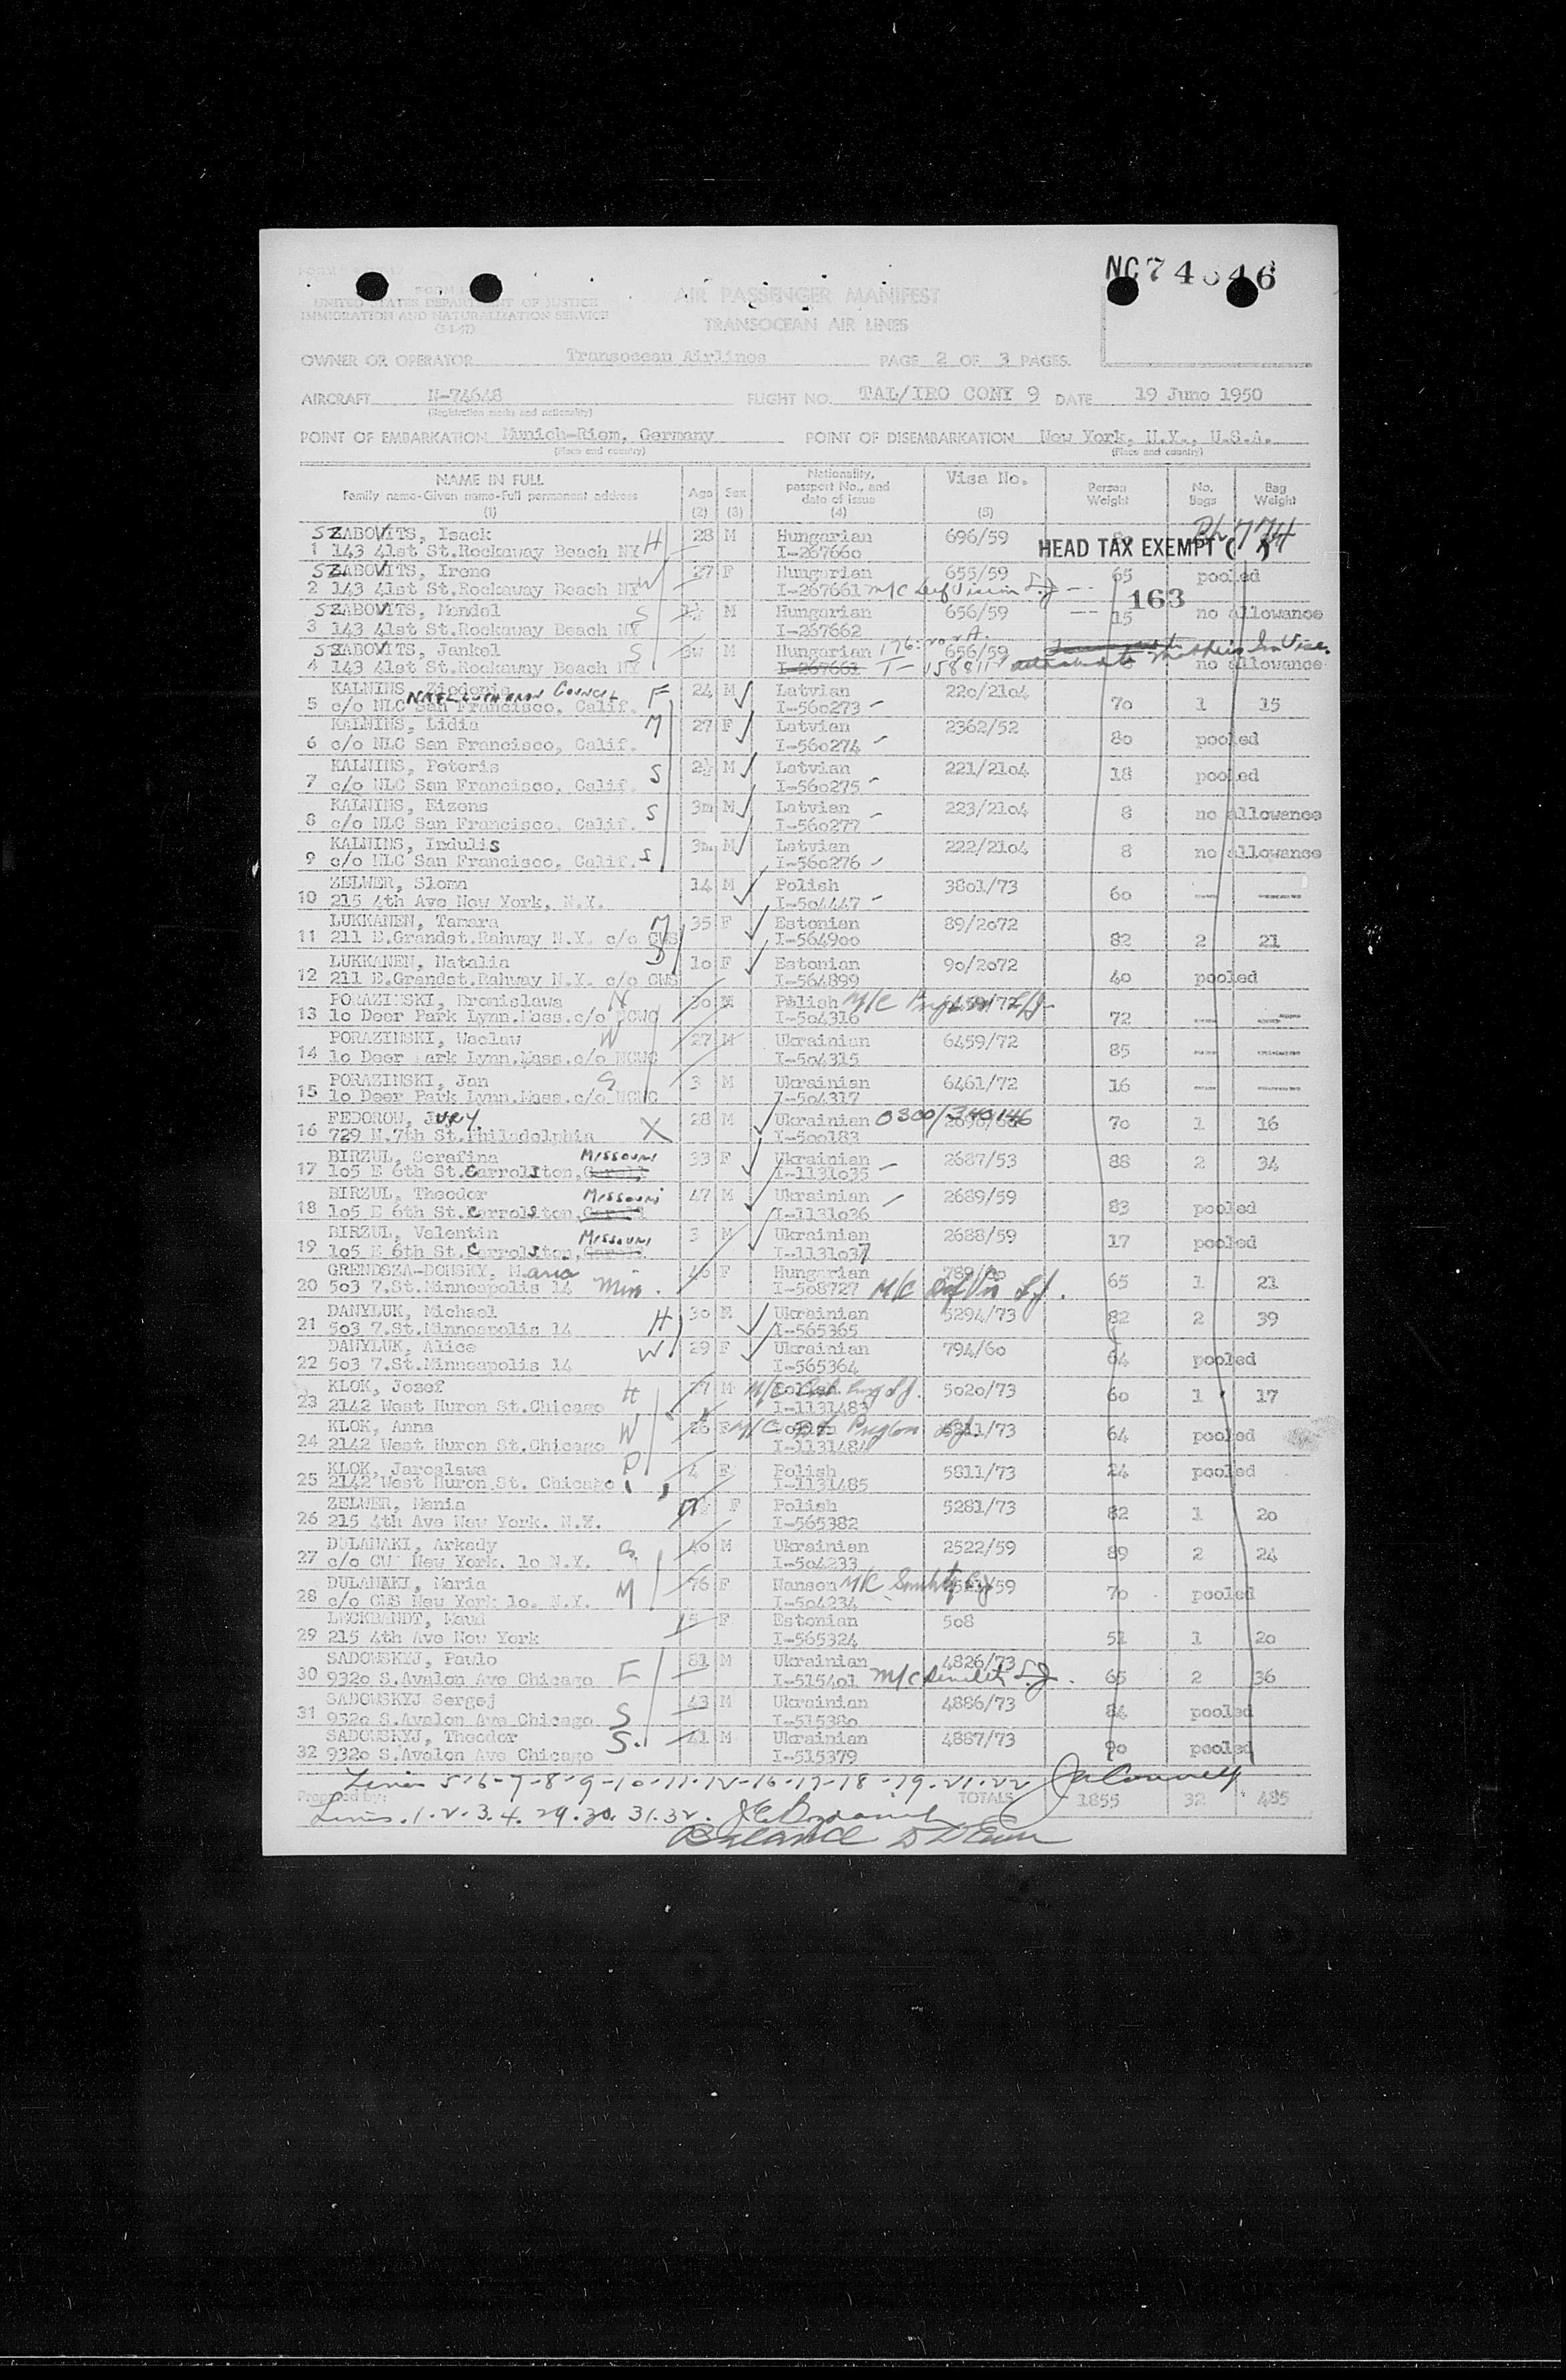 NC74646
UNITED STATES DEPARTMENT OF JUSTICE
IMMIGRATION AND NATURALIZATION SERVICE
AIR PASSENGER MANIFEST
TRANSOCEAN AIR LINES
OWNER OR OPERATOR Transocean Airlines PAGE 2 OF 3 PAGES.
AIRCRAFT N-74648 FLIGHT NO. TAL/IRO CONY 9 DATE 19 June 1950
(Registration marks and nationality)
POINT OF EMBARKATION Munich-Riem, Germany POINT OF DISEMBARKATION New York, N.Y., U.S.A.
(Place and country) (Place and country)
NAME IN FULL
Family name-Given name-Full permanent address
(1)
Age
(2)
Sex
(3)
Nationality,
passport No., and
date of issue
(4)
Visa No.
(5)
Person
Weight
No.
Bags
Bag
Weight
SZABOVITS, Isack H 28 M Hungarian 696/59
1 143 41st St.Rockaway Beach NY I-267660
HEAD TAX EXEMPT
SZABOVITS, Irene W 27 F Hungarian 655/59 65 pooled
2 143 41st St.Rockaway Beach NY I-267661 M/C Def Vision
163
SZABOVITS, Mendel S M Hungarian 656/59 15 no allowance
3 143 41st St.Rockaway Beach NY I-267662
SZABOVITS, Jankel S 3w M Hungarian 656/59 no allowance
4 143 41st St.Rockaway Beach NY I-267661
KALNINS, Ziedonis F 24 M Latvian 220/2104
NAT'L LUTHERAN COUNCIL
5 c/o NLC San Francisco, Calif. I-560273 70 1 15
KALNINS, Lidia M 27 F Latvian 2362/52
6 c/o NLC San Francisco, Calif. I-560274 80 pooled
KALNINS, Peteris S 2½ M Latvian 221/2104
7 c/o NLC San Francisco, Calif. I-560275 18 pooled
KALNINS, Eizens S 3m M Latvian 223/2104
8 c/o NLC San Francisco, Calif. I-560277 8 no allowance
KALNINS, Indulis S 3m M Latvian 222/2104
9 c/o NLC San Francisco, Calif. I-560276 8 no allowance
ZELWER, Sloma 14 M Polish 3801/73
10 215 4th Ave New York, N.Y. I-504447 60
LUKKANEN, Tamara M 35 F Estonian 89/2072
11 211 E.Grandst.Rahway N.Y. c/o CWS I-564900 82 2 21
LUKKANEN, Natalia D 10 F Estonian 90/2072
12 211 E.Grandst.Rahway N.Y. c/o CWS I-564899 40 pooled
PORAZINSKI, Bronislawa 30 M Polish
13 10 Deer Park Lynn.Mass.c/o NCWC I-504316 72
PORAZINSKI, Waclaw W 27 M Ukrainian 6459/72
14 10 Deer Park Lynn.Mass.c/o NCWC I-504315 85
PORAZINSKI, Jan S 3 M Ukrainian 6461/72 16
15 10 Deer Park Lynn.Mass.c/o NCWC I-504317
FEDOROW, JURY X 28 M Ukrainian 0300/340146
16 729 N.7th St.Philadelphia I-500183 70 1 16
BIRZUL, Serafina MISSOURI 33 F Ukrainian 2687/53 88 2 34
17 105 E 6th St.Carrollton, I-1131035
BIRZUL, Theodor MISSOURI 47 M Ukrainian 2689/59
18 105 E 6th St.Carrollton, I-1131036 83 pooled
BIRZUL, Valentin MISSOURI 3 M Ukrainian 2688/59 17 pooled
19 105 E 6th St.Carrollton, I-1131037
GRENDSZA-DONSKY, Maria 46 F Hungarian 789/60 65 1 21
20 503 7.St.Minneapolis 14 Min. I-508727
DANYLUK, Michael H 30 M Ukrainian 5294/73 82 2 39
21 503 7.St.Minneapolis 14 I-565365
DANYLUK, Alice W 29 F Ukrainian 794/60
22 503 7.St.Minneapolis 14 I-565364 64 pooled
KLOK, Jozef H 27 M 5020/73 60 1 17
23 2142 West Huron St.Chicago I-1131483
KLOK, Anna W 26 F
24 2142 West Huron St.Chicago I-1131484 64 pooled
KLOK, Jaroslawa D 4 F Polish 5811/73 24 pooled
25 2142 West Huron St. Chicago I-1131485
ZELWER, Mania F Polish 5281/73 82 1 20
26 215 4th Ave New York. N.Y. I-565382
DULANAKI, Arkady S. 40 M Ukrainian 2522/59 89 2 24
27 New York. 10 N.Y. I-504233
DULANAKI, Maria M 76 F Nansen M/C Senility 70 pooled
28 c/o CWS New York 10. N.Y. I-504234
LECKBANDT, Maud 15 F Estonian 508
29 215 4th Ave New York I-565324 51 1 20
SADOWSKYJ, Pawlo F 81 M Ukrainian 4826/73
30 9320 S.Avalon Ave Chicago I-515401 M/C Senility 65 2 36
SADOWSKYJ Sergej S 43 M Ukrainian 4886/73
31 9320 S.Avalon Ave Chicago I-515380 84 pooled
SADOWSKYJ, Theodor S. 41 M Ukrainian 4887/73
32 9320 S.Avalon Ave Chicago I-515379 90 pooled
Lines 5-6-7-8-9-10-11-12-16-17-18-19-21-22
Prepared by: TOTALS 1855 32 485
Lines. 1.2.3.4. 29.30. 31.32.
Balance